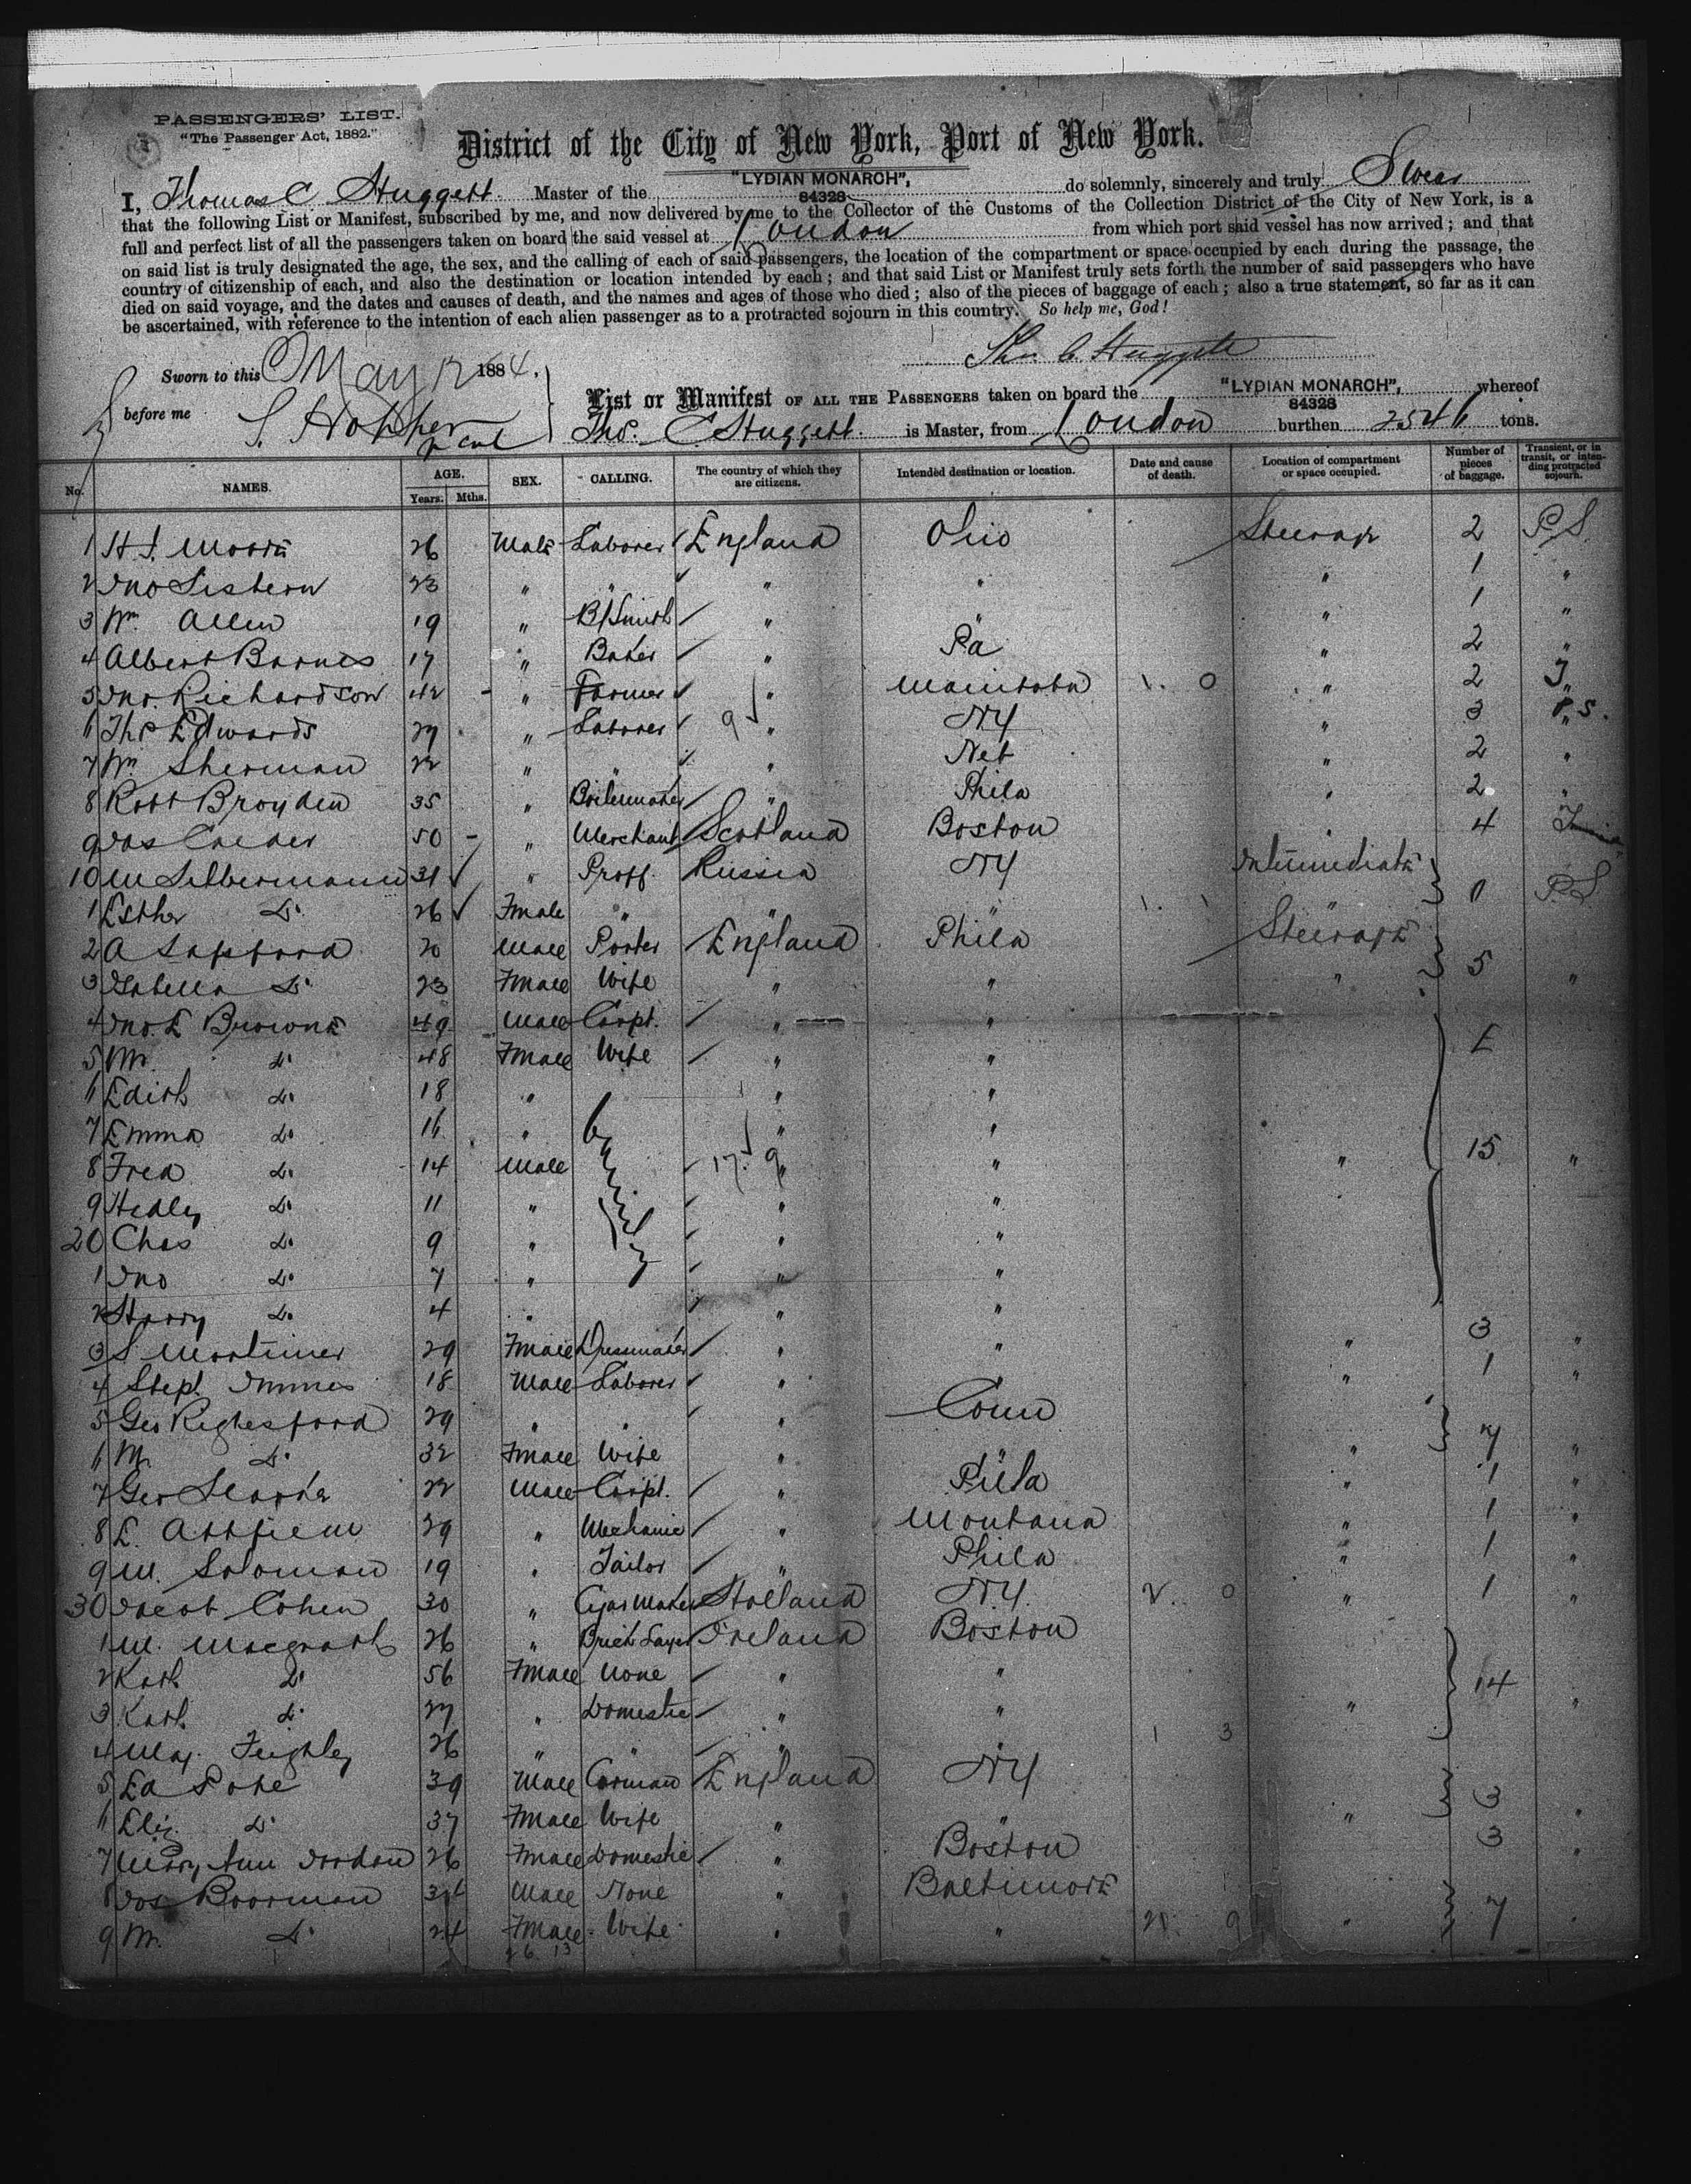 PASSENGERS' LIST.
"The Passenger Act, 1882."
District of the City of New York, Port of New York.
I, Thomas C Huggett. Master of the "LYDIAN MONARCH", 84328 do solemnly, sincerely and truly Swear
that the following List or Manifest, subscribed by me, and now delivered by me to the Collector of the Customs of the Collection District of the City of New York, is a
full and perfect list of all the passengers taken on board the said vessel at London from which port said vessel has now arrived; and that
on said list is truly designated the age, the sex, and the calling of each of said passengers, the location of the compartment or space occupied by each during the passage, the
country of citizenship of each, and also the destination or location intended by each; and that said List or Manifest truly sets forth the number of said passengers who have
died on said voyage, and the dates and causes of death, and the names and ages of those who died; also of the pieces of baggage of each; also a true statement, so far as it can
be ascertained, with reference to the intention of each alien passenger as to a protracted sojourn in this country. So help me, God!
Thos C. Huggett
Sworn to this May 12 1884.
before me
List or Manifest OF ALL THE PASSENGERS taken on board the "LYDIAN MONARCH", 84328 whereof
Thos. C Huggett. is Master, from London burthen 2546 tons.
No. NAMES. AGE. Years. Mths. SEX. CALLING. The country of which they are citizens. Intended destination or location. Date and cause of death. Location of compartment or space occupied. Number of pieces of baggage. Transient, or in transit, or intending protracted sojourn.
1 H. J. Moore 26 Male Laborer England Ohio Steerage 2 P.S.
2 Jno 23 " " " " " 1 "
3 Wm Allen 19 " B/Smith " " " 1 "
4 Albert Barnes 17 " Baker " Pa " 2 "
5 Jno. Richardson 42 " Farmer " Manitoba " 2 T
6 Thos Edwards 29 " Laborer " NY " 3 P.S.
7 Wm Sherman 22 " " " Neb " 2 "
8 Robt Broyden 35 " Boilermaker " Phila " 2 "
9 Jas Calder 50 " Merchant Scotland Boston " 4
10 M Silbermann 31 Proff. Russia NY Intermediate P.S.
1 Esther Do. 26 Fmale " " " "
2 A Sapsford 20 Male Porter England Phila Steerage 5
3 Isabella Do. 23 Fmale Wife " " " "
4 Jno. E Browne 49 Male Carpt. " "
5 M. Do. 48 Fmale Wife " "
6 Edith Do. 18 " " "
7 Emma Do. 16 " family " "
8 Fred Do. 14 Male " " " 15 "
9 Hedley Do. 11 " " "
20 Chas Do. 9 " " "
1 Jno Do. 7 " " "
2 Harry Do. 4 " " "
3 S Mortimer 29 Fmale Dressmaker " " " 3 "
4 Steph 18 Male Laborer " " 1 "
5 Geo 29 " " " Conn
6 M. Do. 32 Fmale Wife " " 7 "
7 Geo 22 Male Carpt. " Phila " 1 "
8 E. 29 " Mechanic " Montana " 1 "
9 M. Solomon 19 " Tailor " Phila " 1 "
30 Jacob Cohen 30 " Cigar Maker Holland NY. " 1 "
1 M. Macgrath 26 " Brick Layer Ireland Boston
2 Kath Do. 56 Fmale None " " 14
3 Kath. Do. 27 " Domestic " " " "
4 May. Feighley 26 " " " "
5 Ed Pope 39 Male Carman England NY 3
6 Eliz. Do. 37 Fmale Wife " " " "
7 Mary Ann Jordan 26 Fmale Domestic " Boston 3 "
8 Jos Boorman 34 Male None " Baltimore
9 M. Do. 24 Fmale Wife " " " 7 "